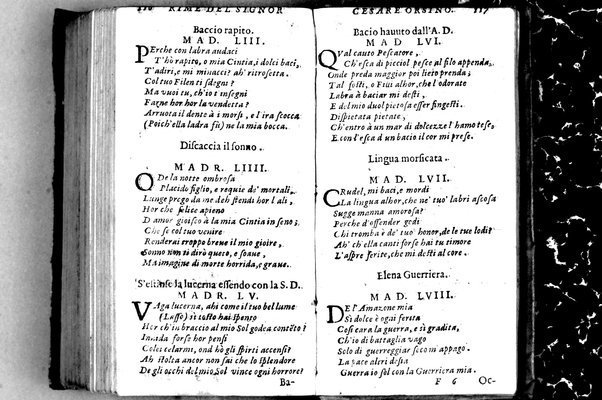 RIME DEL SIGNOR
Baccio rapito.
MAD. LIII.
PErche con labra audaci
T'hò rapito, o mia Cintia, i dolci baci,
T'adiri, e mi minacci? ah' ritrosetta.
Col tuo Filen ti sdegni?
Ma vuoi tu, ch'io t'insegni
Farne hor hor la vendetta?
Arruota il dente à i morsi, e l'ira scocca
(Poich' ella ladra fù) ne la mia bocca.
Discaccia il sonno.
MADR. LIIII.
O De la notte ombrosa
Placido figlio, e requie de' mortali,
Lunge prego da me deh stendi hor l'ali,
Hor che felice apieno
D'amor gioisco à la mia Cintia in seno;
Che se col tuo venire
Renderai troppo breue il mio gioire,
Sonno non ti dirò queto, e soaue,
Ma imagine di morte horrida, e graue.
S'estinse la lucerna essendo con la S. D.
MADR. LV.
VAga lucerna, ahi come il tuo bel lume
(Lasso) sì tosto hai spento
Hor ch'in braccio al mio Sol godea contēto?
Inuida forse hor pensi
Colei celarmi, ond' hò gli spirti accensi?
Ah stolta ancor non sai che lo splendore
De gli occhi del mio Sol vince ogni horrore?
Ba-
CESARE ORSINO. 117
Bacio hauuto dall'A. D.
MAD LVI.
QVal cauto Pescatore,
Ch'esca di picciol pesce al filo appenda,
Onde preda maggior poi lieto prenda;
Tal fosti, o Fiui alhor, che l'odorate
Labra à baciar mi desti,
E del mio duol pietosa esser fingesti.
Dispietata pietate,
Ch'entro à un mar di dolcezze l'hamo teso,
E con l'esca d'un bacio il cor mi prese.
Lingua morsicata.
MAD. LVII.
CRudel, mi baci, e mordi
La lingua alhor, che ne' tuo' labri ascosa
Sugge manna amorosa?
Perche d'offender godi
Chi tromba è de' tuo' honor, de le tue lodi?
Ah' ch'ella canti forse hai tu timore
L'aspre ferite, che mi desti al core.
Elena Guerriera.
MAD. LVIII.
DE l'Amazone mia
Sì dolce è ogni ferita
Così cara la guerra, e sì gradita,
Ch'io di battaglia vago
Solo di guerreggiar seco m'appago.
La pace altri desia
Guerra io sol con la Guerriera mia.
F 6 Oc-